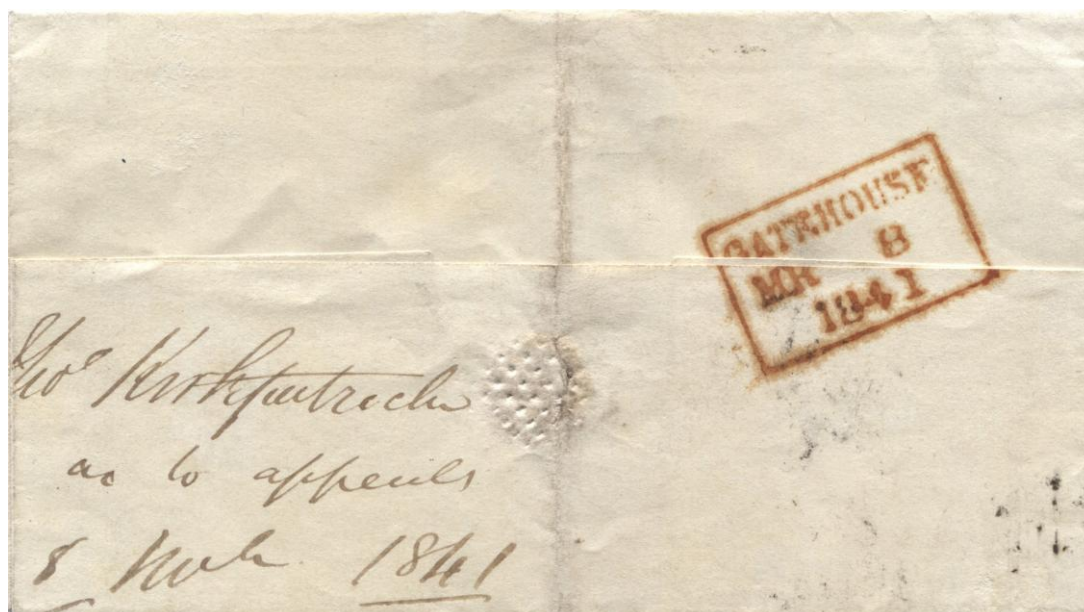 GATEHOUSE
MR 8
1841
Thoˢ Kirkpatrick
as to appeals
8 March 1841